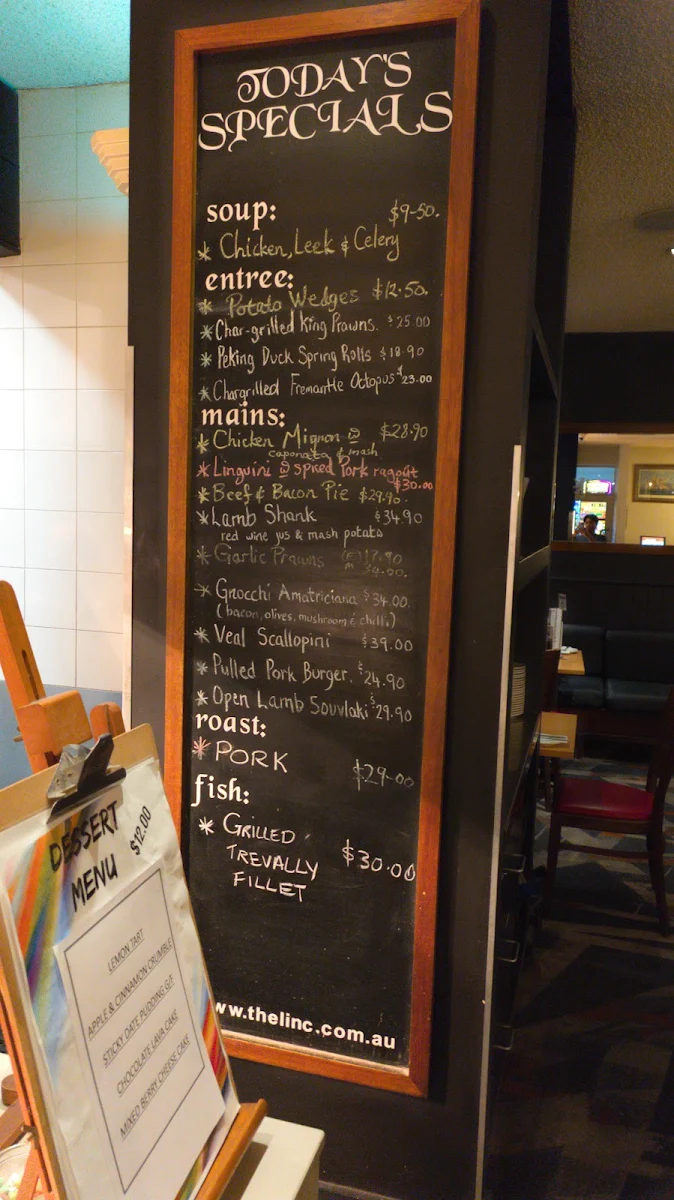 TODAY'S
SPECIALS
soup: $9-50.
* Chicken, Leek & Celery
entree:
* Potato Wedges $12.50.
* Char-grilled King Prawns. $25.00
* Peking Duck Spring Rolls $18.90
* Chargrilled Fremantle Octopus $23.00
mains:
* Chicken Mignon @ $28.90
caponata & mash
* Linguini @ spiced Pork ragout
$30.00
* Beef & Bacon Pie $29.90.
* Lamb Shank $34.90
red wine jus & mash potato
* Garlic Prawns (E)
M
* Gnocchi Amatriciana $34.00.
(bacon, olives, mushroom & chilli)
* Veal Scallopini $39.00
* Pulled Pork Burger. $24.90
* Open Lamb Souvlaki $29.90
roast:
* PORK $29-00
fish:
* GRILLED
TREVALLY $30.00
FILLET
www.thelinc.com.au
DESSERT
MENU $12.00
LEMON TART
APPLE & CINNAMON CRUMBLE
STICKY DATE PUDDING G/F
CHOCOLATE LAVA CAKE
MIXED BERRY CHEESE CAKE